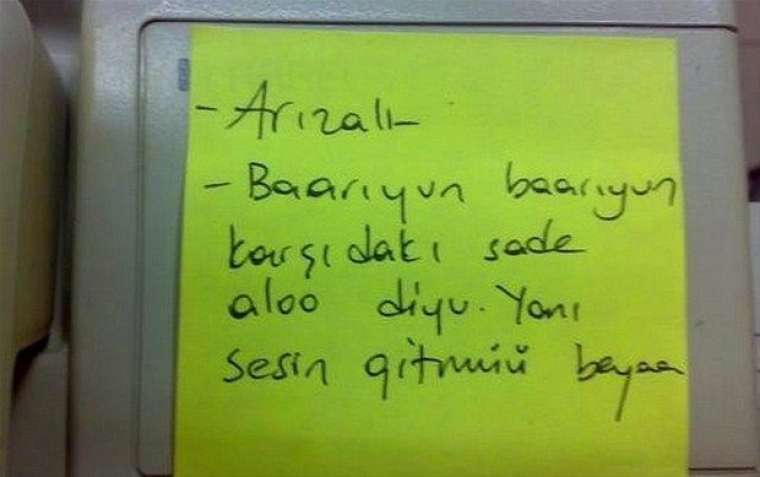 - Arızalı-
- Baarıyun baarıyun
karşıdakı sade
aloo diyu. Yanı
sesin gitmüü beyaa